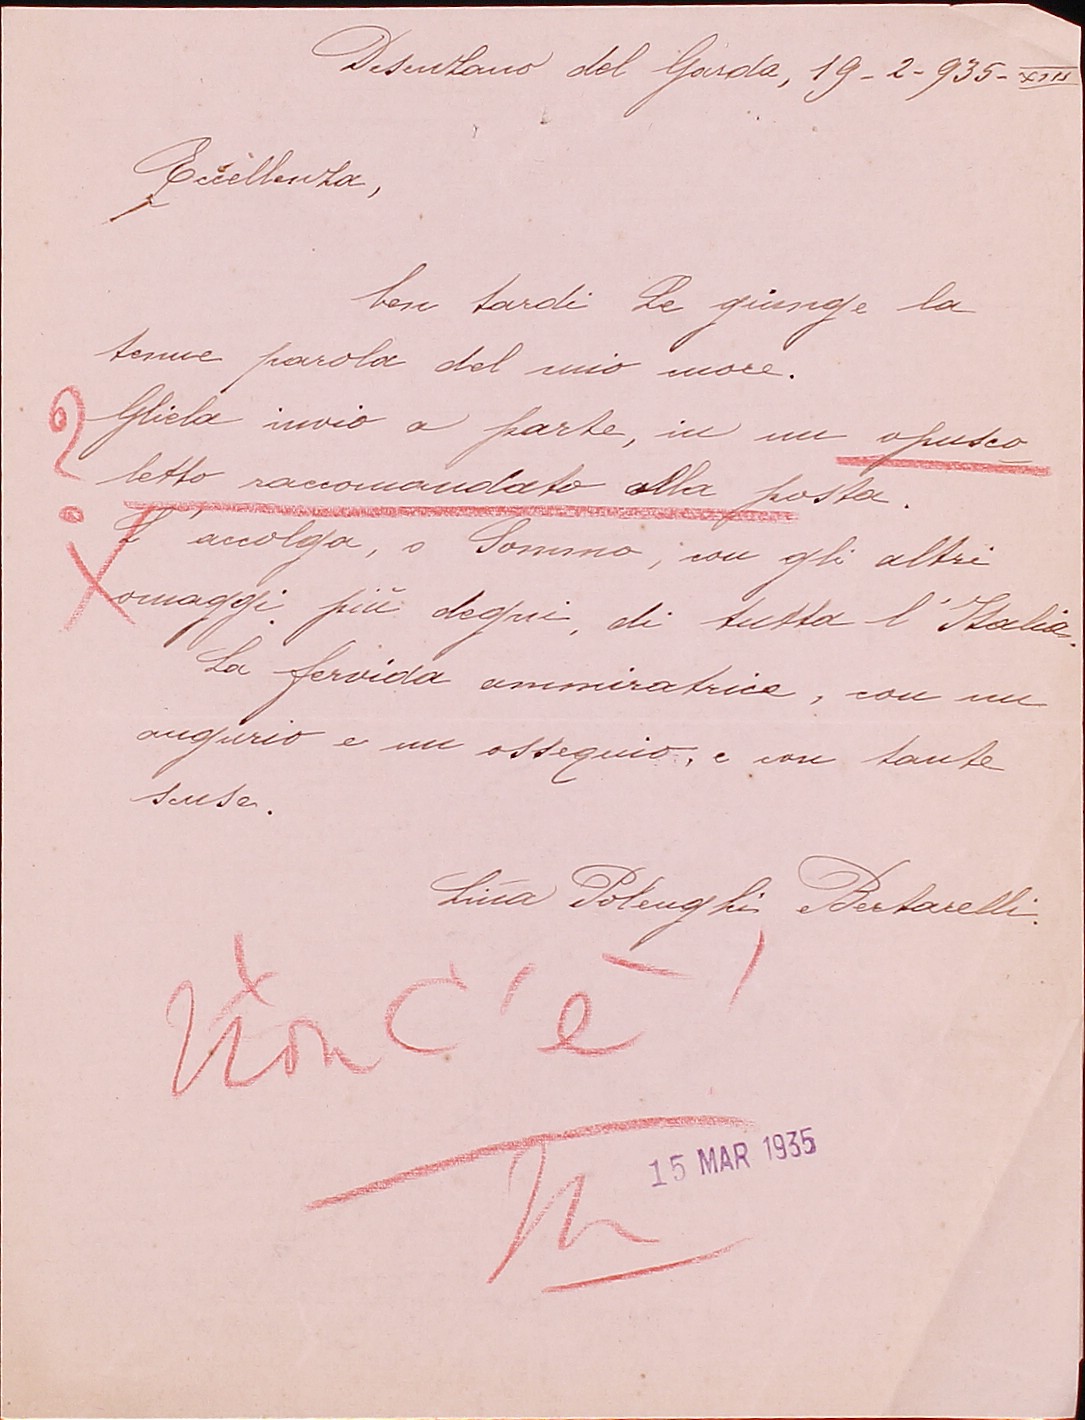 Desenzano del Garda, 19-2-935-XIII
Eccellenza,
ben tardi Le giunge la
tenue parola del mio cuore.
? Gliela invio a parte, in un opusco
letto raccomandato alla posta.
X L'accolga, o Sommo, con gli altri
omaggi più degni, di tutta l'Italia.
La fervida ammiratrice, con un
augurio e un ossequio, e con tante
scuse.
Lina Polenghi Bertarelli.
X
Non c'è!
15 MAR 1935